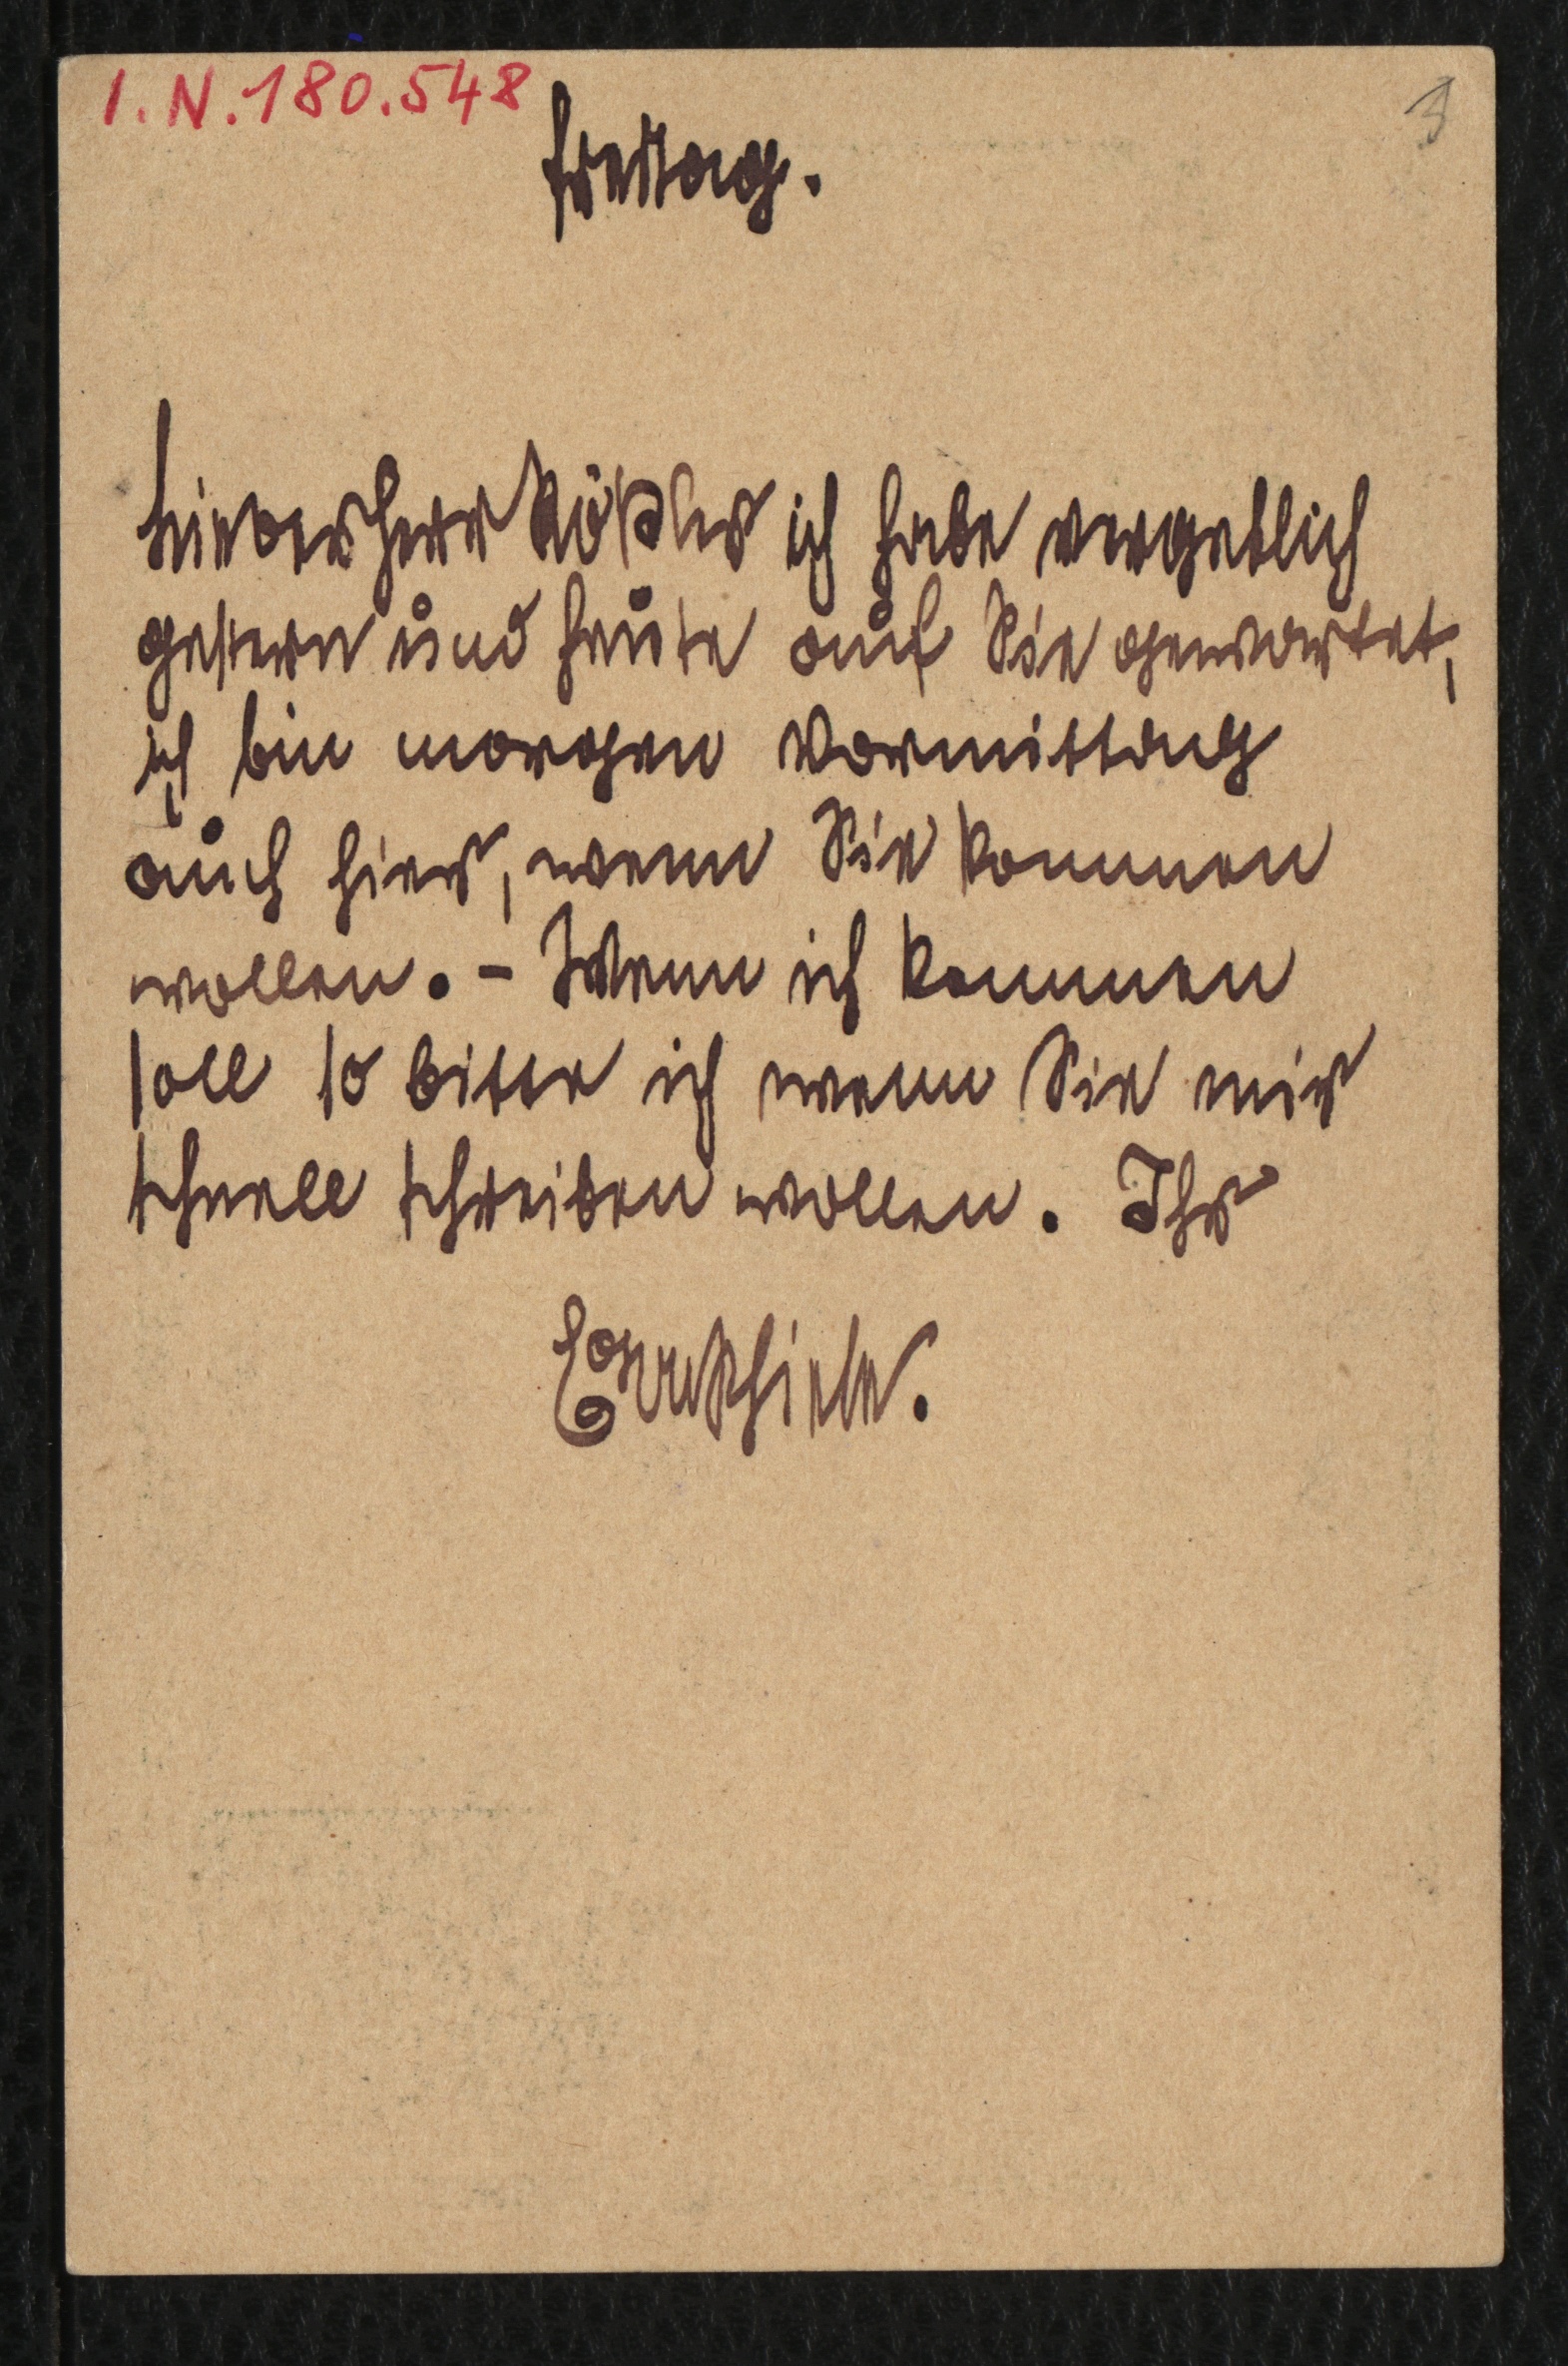 I.N.180.548
3
Freitag.
Lieber Herr Rößler ich habe vergeblich
gestern und heute auf Sie gewartet,
ich bin morgen Vormittag
auch hier, wenn Sie kommen
wollen. – Wenn ich kommen
soll so bitte ich wenn Sie mir
schnell schreiben wollen. Ihr
Egon Schiele.